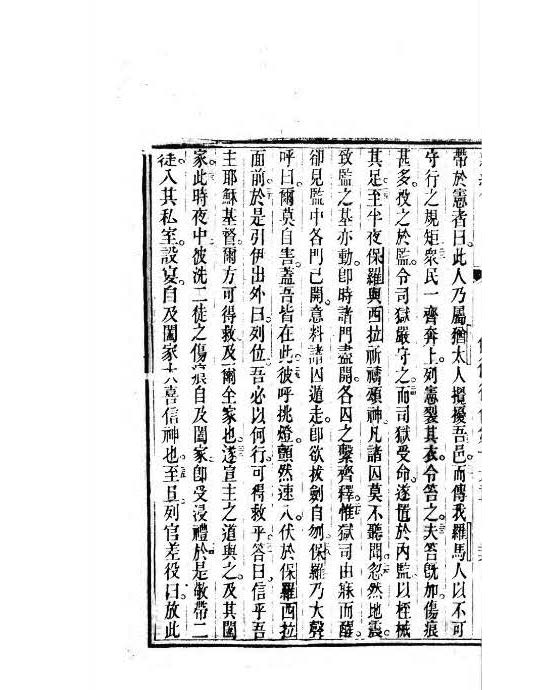 帶於憲者曰此人乃屬猶太人攪擾吾邑而傳我羅馬人以不可
守行之規矩衆民一齊奔上列憲裂其衣令笞之夫笞旣加傷痕
甚多投之於監令司獄嚴守之而司獄受命遂置於內監以桎械
其足至半夜保羅與西拉祈禱頌神凡諸囚莫不聽聞忽然地震
致監之基亦動卽時諸門盡開各囚之繫齊釋惟獄司由寐而醒
卻見監中各門已開意料諸囚遁走卽欲拔劍自刎保羅乃大聲
呼曰爾莫自害蓋吾皆在此彼呼挑燈顫然速入伏於保羅西拉
面前於是引伊出外曰列位吾必以何行可得救乎答曰信乎吾
主耶穌基督爾方可得救及爾全家也遂宣主之道與之及其闔
家此時夜中彼洗二徒之傷痕自及闔家卽受浸禮於是敬帶二
徒入其私室設宴自及闔家大喜信神也至旦列官差役曰放此